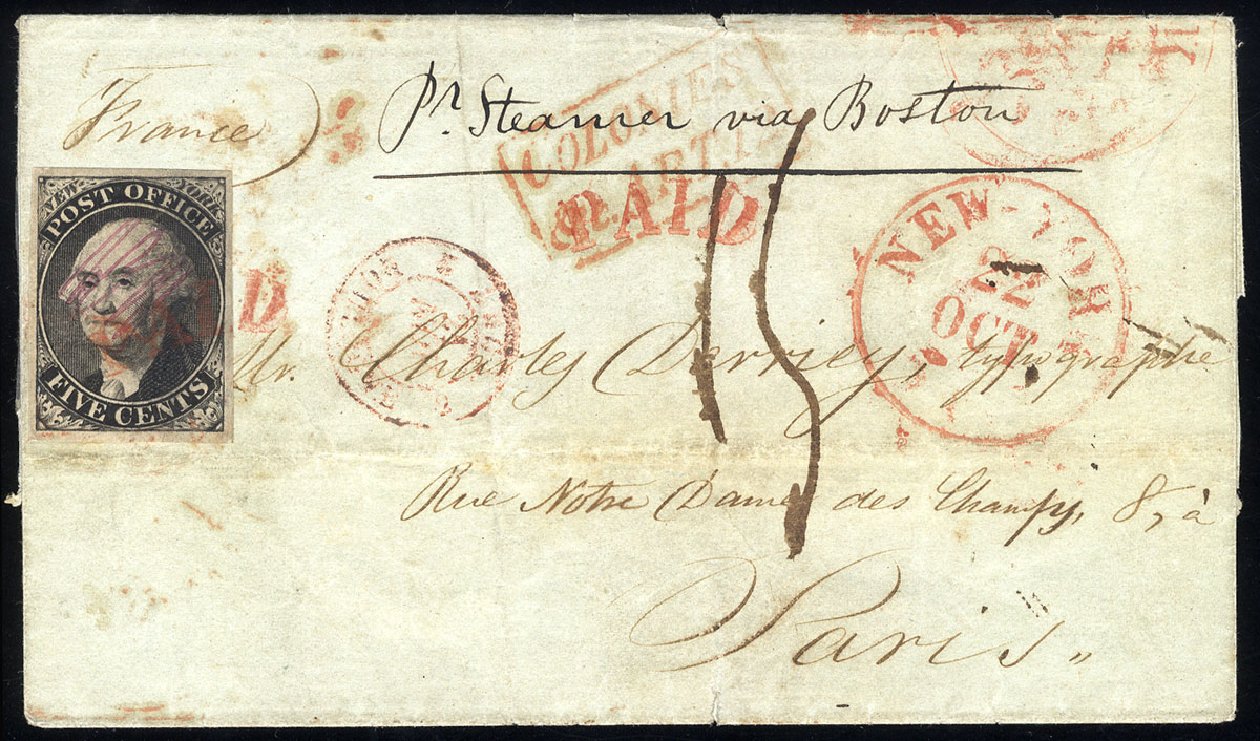 France
pr. Steamer via Boston
COLONIES
&c. ART. 13
PAID
NEW YORK
POST OFFICE
FIVE CENTS
D
NEW-YOR
OCT
Mr. Charles Derriey, typographe
Rue Notre Dame des Champs, 8, à
Paris.
15